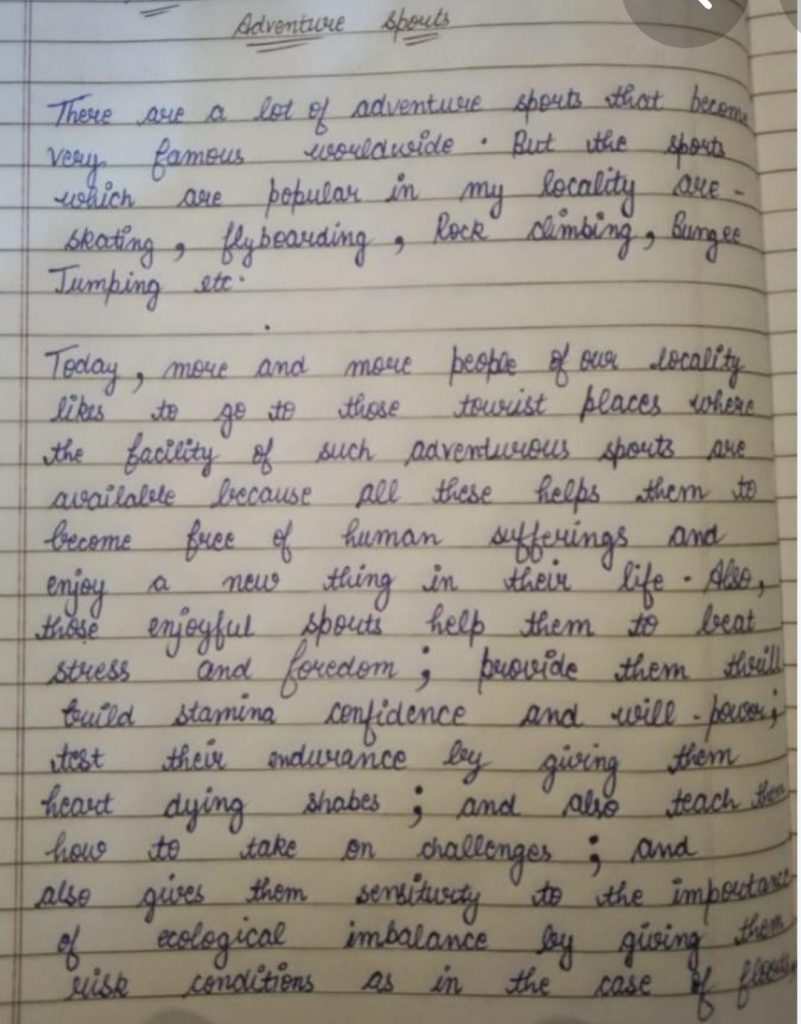 Adventure Sports
There are a lot of adventure sports that become
very famous worldwide. But the sports
which are popular in my locality are -
skating, flyboarding, Rock climbing, Bungee
Jumping etc.
Today, more and more people of our locality
likes to go to those tourist places where
the facility of such adventurous sports are
available because all these helps them to
become free of human sufferings and
enjoy a new thing in their life. Also,
those enjoyful sports help them to beat
stress and foredom; provide them thrill
build stamina confidence and will-power;
test their endurance by giving them
heart dying shabes; and also teach them
how to take on challenges; and
also gives them sensiturty to the importance
of ecological imbalance by giving them
risk conditions as in the case of floods,